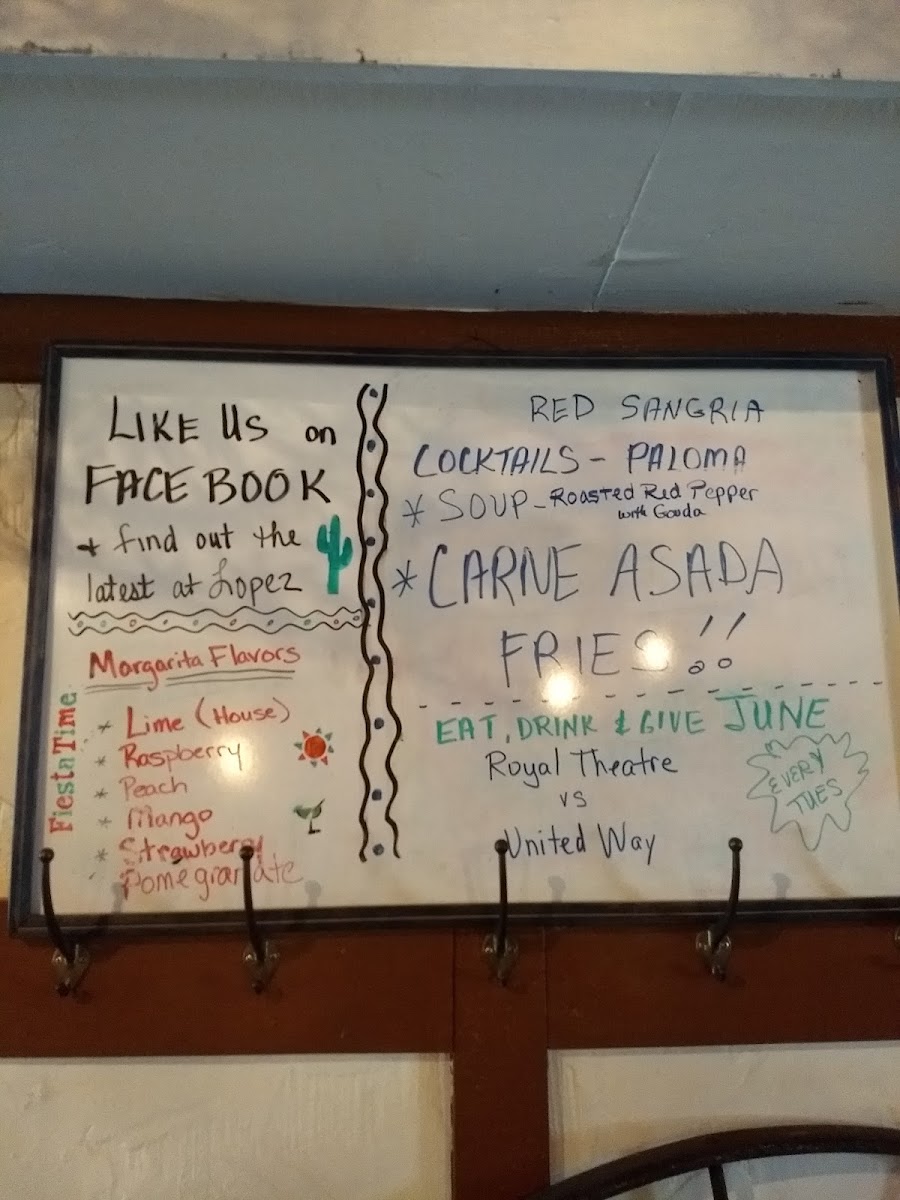 LIKE US on
FACEBOOK
+ find out the
latest at Lopez
Margarita Flavors
Fiesta Time
* Lime (House)
* Raspberry
* Peach
* Mango
* Strawberry
* Pomegranate
RED SANGRIA
COCKTAILS - PALOMA
* SOUP - Roasted Red Pepper
with Gouda
* CARNE ASADA
FRIES!!
EAT, DRINK & GIVE JUNE
Royal Theatre
vs
United Way
EVERY
TUES